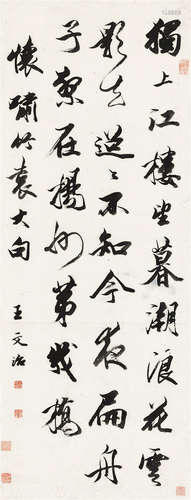 獨上江樓坐暮潮浪花雲
影去迢〻不知今夜扁舟
子繫在揚州第幾橋
懷嘯竹袁大句
王文治